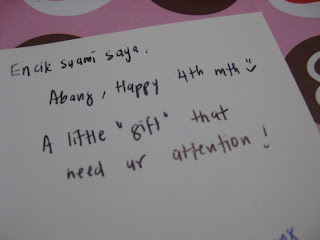 Encik syami saya.
Abang, Happy 4th mth
A little "gift" that
need ur attention!